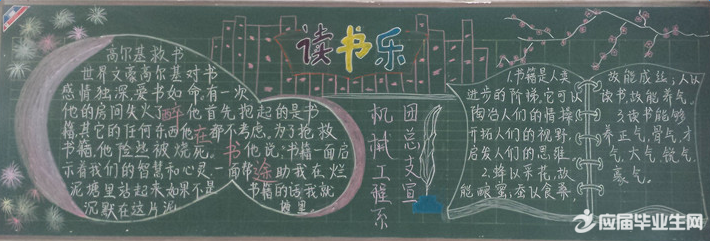 读书乐
高尔基救书
世界文豪高尔基对书
感情独深，爱书如命，有一次
他的房间失火了，他首先抱起的是书
籍，其它的任何东西他都不考虑，为了抢救
书籍，他险些被烧死。他说：书籍一面启
示着我们的智慧和心灵，一面帮助我在烂
泥塘里站起来如果不是书籍的话我就
沉默在这片泥塘里
醉在书海
机械工程系
团总支宣
1.书籍是人类
进步的阶梯，它可以
陶冶人们的情操
开拓人们的视野，
启发人们的思维。
2.蜂以采花，故
能酿蜜，蚕以食桑，
故能成丝，人以
读书，故能养气。
3.读书能够
养正气，骨气，才
气，大气，锐气，
豪气。
应届毕业生网